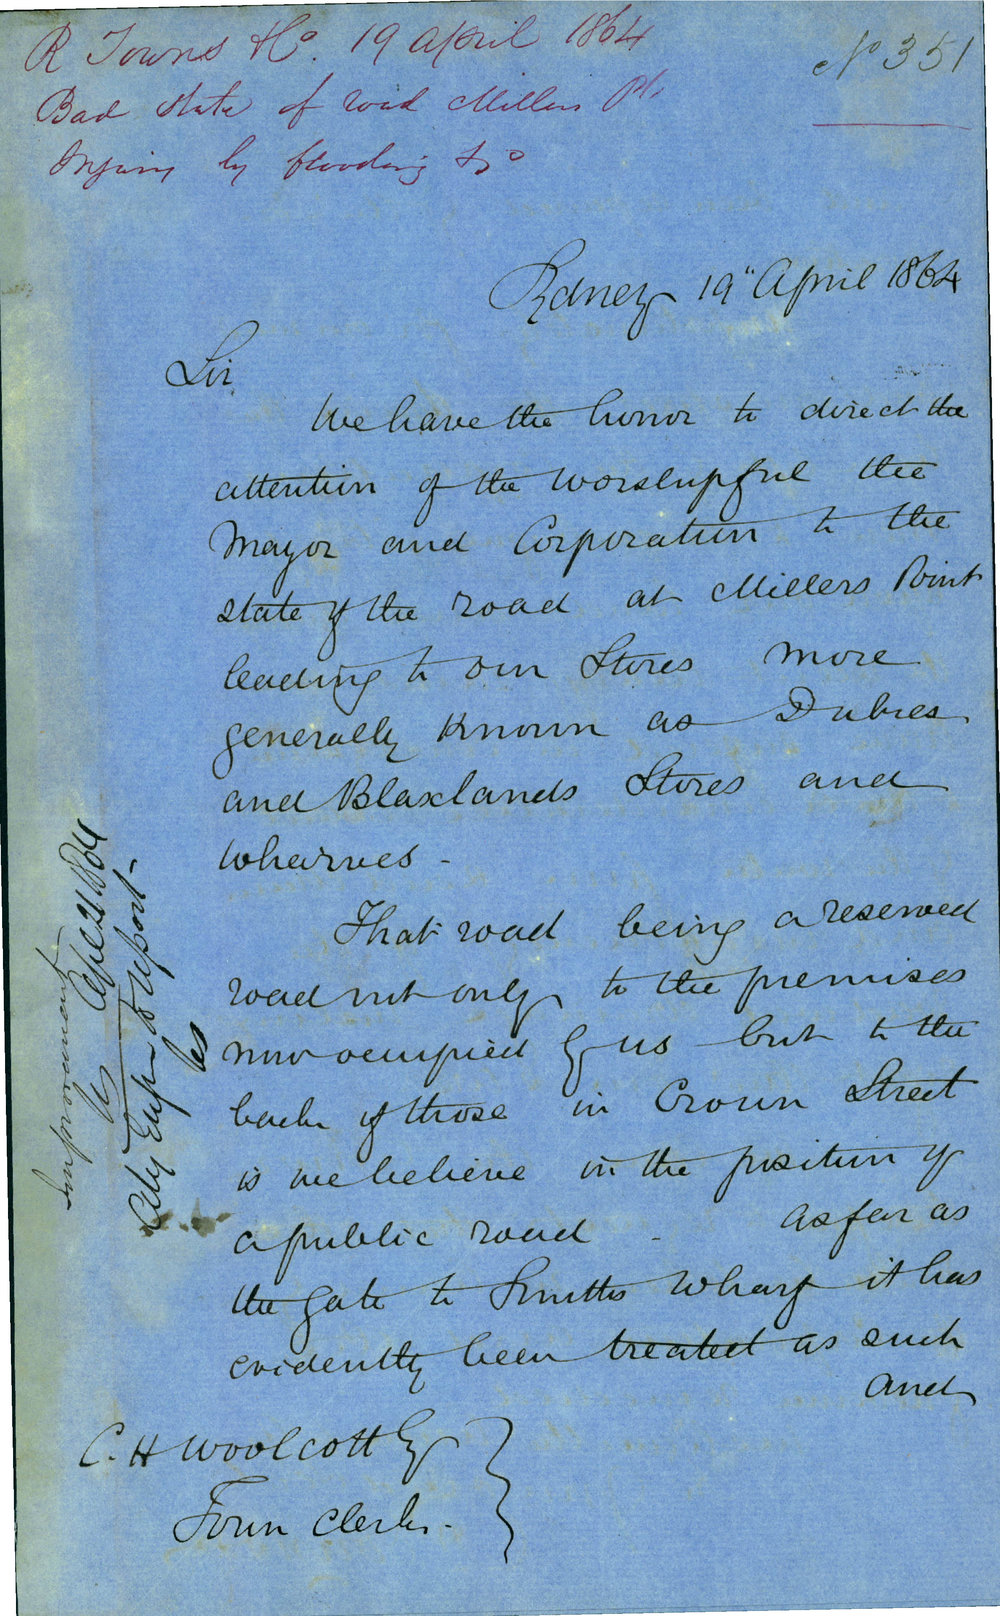 R Towns & Co. 19 April 1864
No 351
Bad state of road Millers Pt.
Injury by flooding &c
Sydney 19" April 1864
Sir
We have the honor to direct the
attention of the worshipful the
Mayor and Corporation to the
state of the road at Millers Point
leading to our Stores more
generally known as Dubies
and Blaxlands Stores and
wharves -
That road being a reserved
road not only to the premises
now occupied by us but to the
back of those in Crown Street
is we believe in the position of
a public road - as far as
the gate to Smiths Wharf it has
evidently been treated as such
and
C. H Woolcott Esq
Town Clerk -
Improvement
Apl 21 1864
City Engr to report -